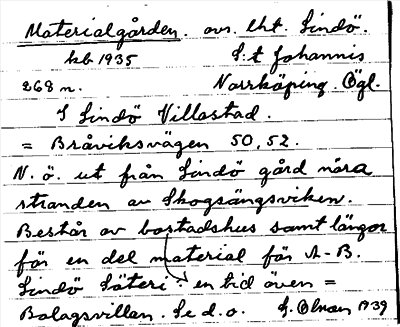 Materialgården. avs. lht. Lindö.
kb 1935 S:t Johannis
268 n. Norrköping. Ögl.
I Lindö Villastad.
= Bråviksvägen 50, 52.
N. ö. ut från Lindö gård nära
stranden av Skogsängsviken.
Består av bostadshus samt längor
för en del material för A-B.
Lindö Säteri: en tid även =
Bolagsvillan. Se d. o. 1939